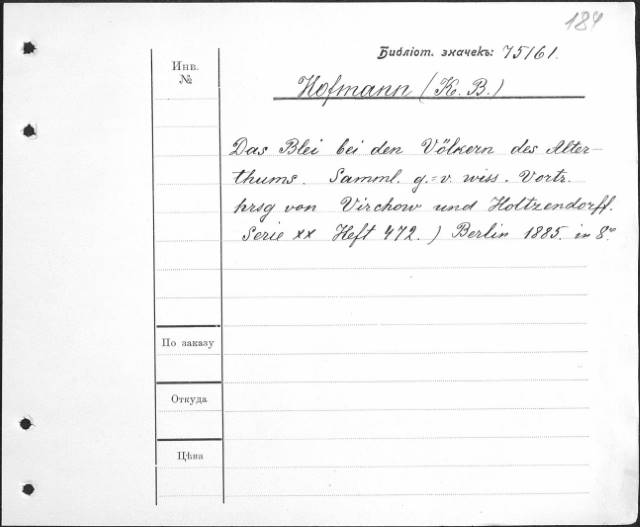 184
Библіот. значекъ: 75/61.
Инв.
№
Hofmann (K. B.)
Das Blei bei den Völkern des Alter-
thums. Samml. g.=v. wiss. Vortr.
hrsg von Virchow und Holtzendorff.
Serie XX Heft 472.) Berlin 1885. in 8º
По заказу
Откуда
Цѣна